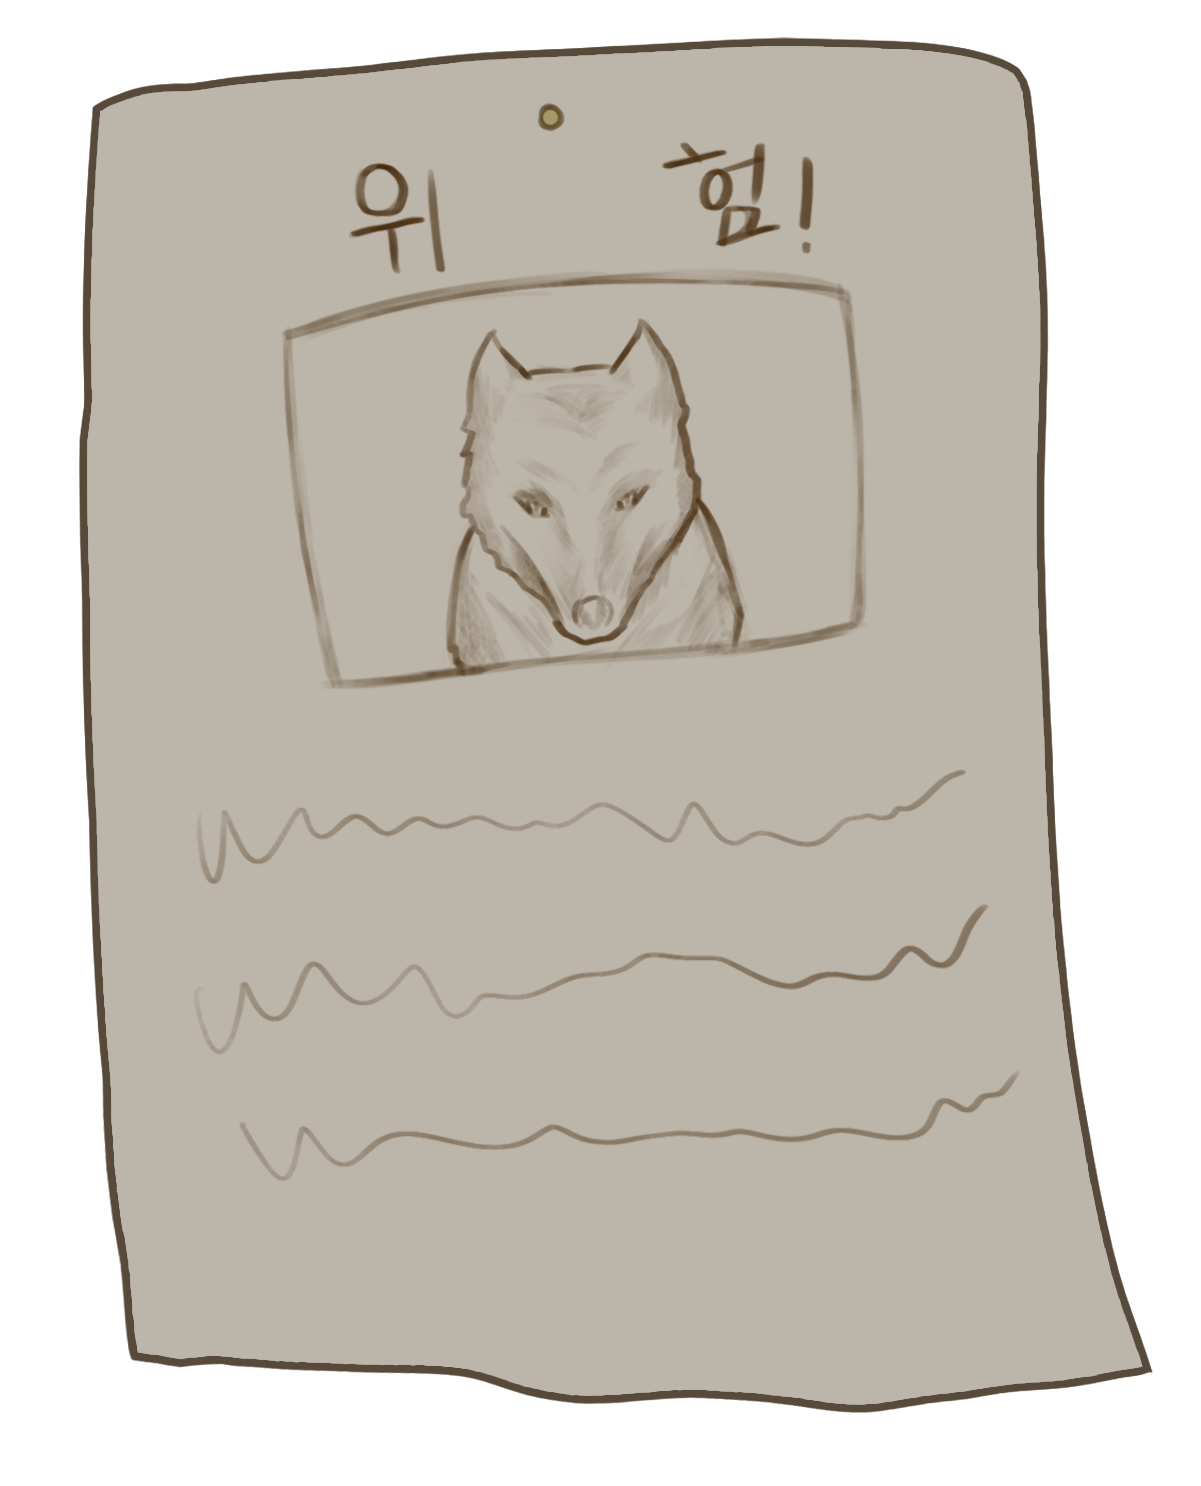 위 험!